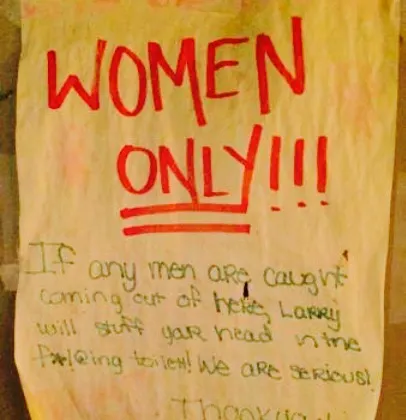 WOMEN
ONLY!!!
If any men are caught
coming out of here, Larry
will stuff your head in the
f*!@ing toilet! We are serious!
Thankyou!